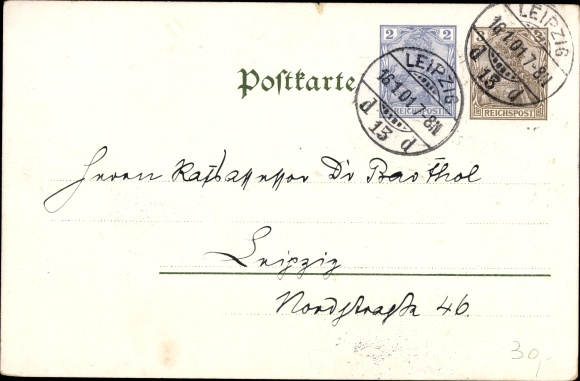 2
REICHSPOST
REICHSPOST
LEIPZIG
16.1.01.7-8N
d 13 d
LEIPZIG
16.1.01.7-8N
d 13 d
Postkarte
Herrn Ratsassessor Dr Barthol
Leipzig
Nordstraße 46.
30,-